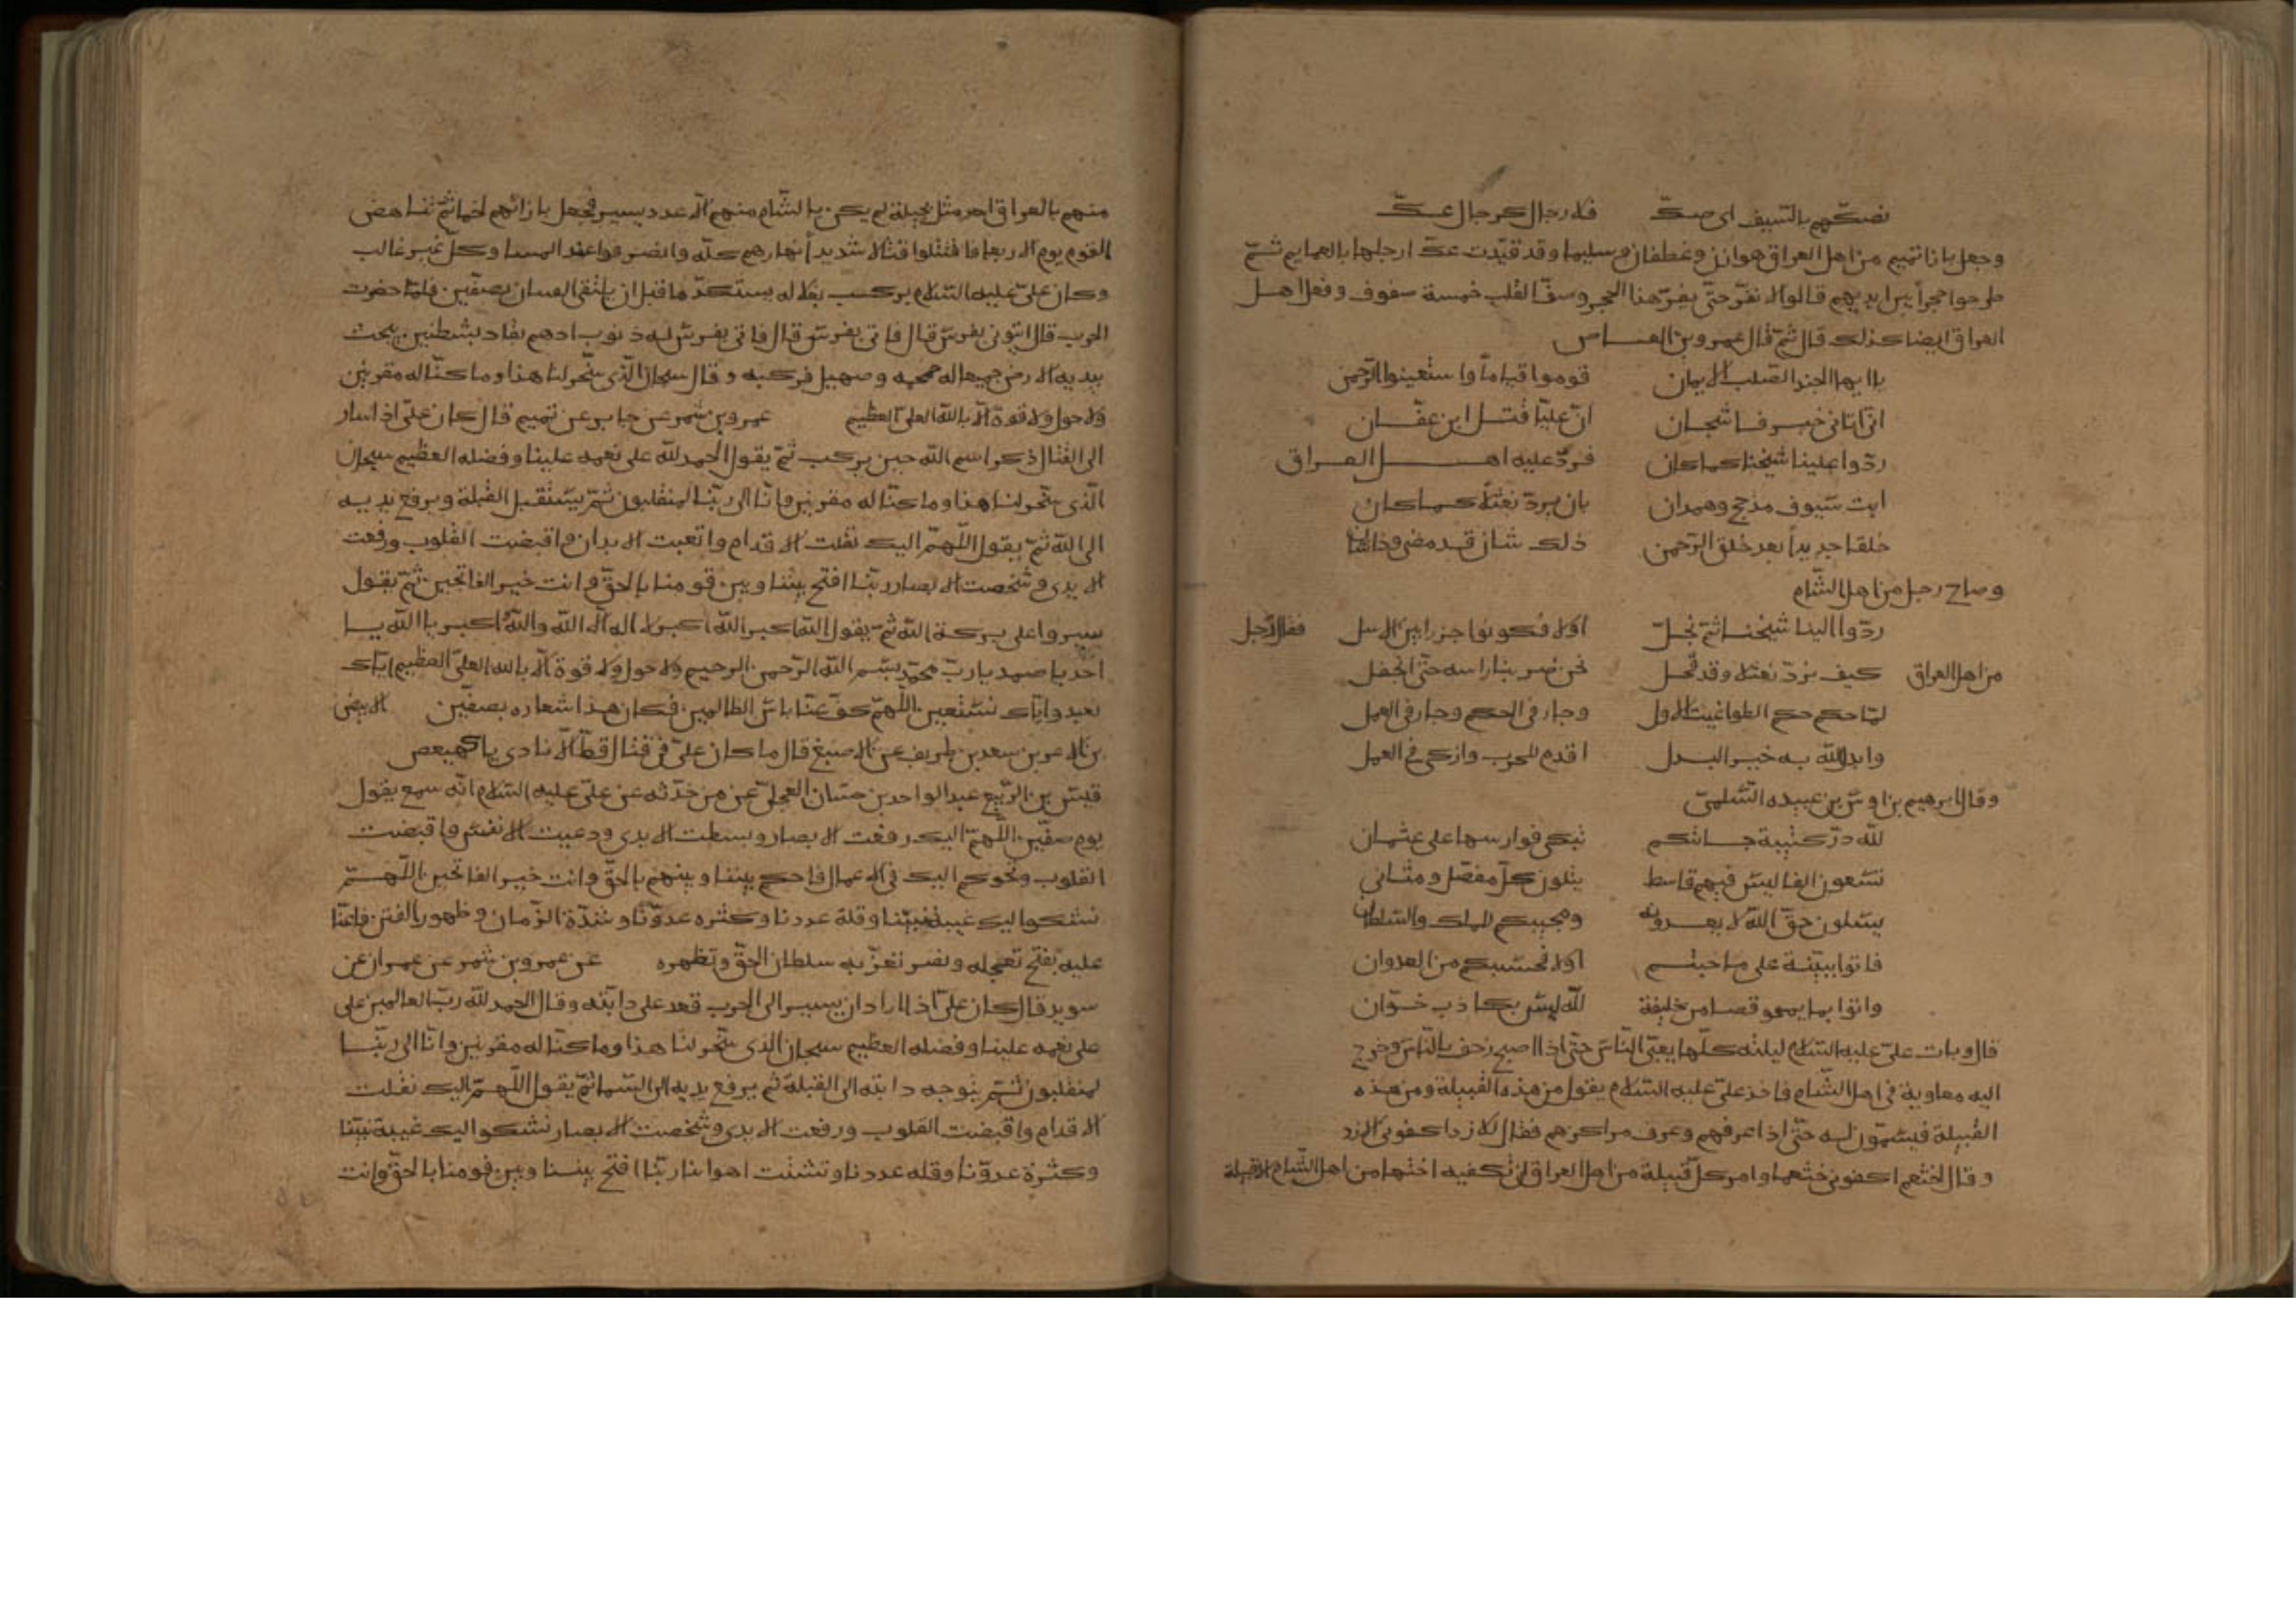 نصكهم بالسيف اى صكّ فلا رجال كرجال عكّ
وجعل بازا تميم من اهل العراق هوازن وغطفان وسليما وقد قيّدت عكّ ارجلها بالعمايم ثمّ
طرحوا حجراً بين ايديهم قالوا لا نفرّ حتّى يفرّ هذا الحجر وصفّ القلب خمسة صفوف وفعل اهل
العراق ايضا كذلك قال ثمّ قال عمرو بن العاص
يا ايها الجند الصلب الايمان قوموا قياماً واستعينوا الرّحمن
انّى اتانى خبر فاشجان انّ عليّا قتل ابن عفّان
ردّوا علينا شيخنا كما كان فردّ عليه اهل العراق
ابت سيوف مذحج وهمدان بان يردّ نعثلاً كما كان
خلقا جديداً بعد خلق الرّحمن ذلك شان قد مضى وذا شان
وصاح رجل من اهل الشّام
ردّوا الينا شيخنا ثمّ بجلّ اولا فكونوا جزرا بين الاسل فقال رجل
من اهل العراق كيف نردّ نعثلا وقد قحل نحن ضربنا راسه حتّى انجفل
لمّا حكم حكم الطواغيت الاول وجار فى الحكم وجار فى العمل
وابدل الله به خير البدل اقدم للحرب وازكى فى العمل
وقال ابرهيم بن اوس بن عبيده السّلمىّ
لله درّ كتيبة جائتكم تبكى فوارسها على عثمان
تسعون الفا ليس فيهم قاسط يتلون كلّ مفصّل ومثانى
يسئلون حقّ الله لا يعدونه ومجيبكم للملك والسّلطان
فاتوا ببيّنة على ما جئتم اولا فحسبكم من العدوان
واتوا بما يمحو قصاص خليفة لله ليس بكاذب خوّان
قال وبات علىّ عليه السّلام ليلته كلّها يعبّى النّاس حتّى اذا اصبح زحف بالنّاس وخرج
اليه معاوية فى اهل الشّام فاخذ علىّ عليه السّلام يقول من هذه القبيلة ومن هذه
القبيلة فيسمّون له حتّى اذا عرفهم وعرف مراكزهم فقال للازد اكفونى الازد
وقال لخثعم اكفونى خثعما وامر كلّ قبيلة من اهل العراق ان تكفيه اختها من اهل الشّام الا قبيلة
منهم بالعراق احد مثل بجيلة لم يكن بالشّام منهم الّا عدد يسير فجعل بازائهم لخما ثمّ تناهض
القوم يوم الاربعا فاقتتلوا قتالا شديداً نهارهم كلّه وانصرفوا عند المسا وكلّ غير غالب
وكان علىّ عليه السّلام يركب بغلا له يستلذّه قبل ان يلتقى الفئتان بصفّين فلمّا حضرت
الحرب قال ائتونى بفرس قال فاتى بفرس له ذنوب ادهم يقاد بشطنين يبحث
بيديه الارض جميعا له حمحمه وصهيل فركبه وقال سبحان الّذى سخّر لنا هذا وما كنّا له مقرنين
ولا حول ولا قوة الّا بالله العلىّ العظيم عمرو بن شمر عن جابر عن تميم قال كان علىّ اذا سار
الى القتال ذكر اسم الله حين يركب ثمّ يقول الحمد لله على نعمه علينا وفضله العظيم سبحان
الّذى سخّر لنا هذا وما كنّا له مقرنين وانّا الى ربّنا لمنقلبون ثمّ يستقبل القبلة ويرفع يديه
الى الله ثمّ يقول اللّهمّ اليك نقلت الاقدام واتعبت الابدان واقبضت القلوب ورفعت
الايدى وشخصت الابصار ربّنا افتح بيننا وبين قومنا بالحقّ وانت خير الفاتحين ثمّ يقول
سيروا على بركة الله ثمّ يقول الله اكبر الله اكبر لا اله الّا الله والله اكبر يا الله يا
احد يا صمد يا ربّ محمّد بسم الله الرّحمن الرحيم ولا حول ولا قوة الّا بالله العلىّ العظيم ايّاك
نعبد وايّاك نستعين اللّهمّ كفّ عنّا باس الظالمين فكان هذا شعاره بصفّين الابيض
بن الاعر بن سعد بن طريف عن الاصبغ قال ما كان علىّ فى قتال قطّ الّا نادى ياكهيعص
قيس بن الرّبيع عبد الواحد بن حسّان العجلىّ عن من حدّثه عن علىّ عليه السّلام انّه سمع يقول
يوم صفّين اللّهمّ اليك رفعت الابصار وبسطت الايدى ودعيت الانفس واقبضت
القلوب وتحوكم اليك فى الاعمال فاحكم بيننا وبينهم بالحقّ وانت خير الفاتحين اللّهمّ
نشكوا اليك غيبة نبيّنا وقلة عددنا وكثره عدوّنا وشدّة الزّمان وظهور الفتن فاعنّا
عليه بفتح تعجله ونصر تعزّ به سلطان الحقّ وتظهره عن عمرو بن شمر عن عمران عن
سويد قال كان علىّ اذا اراد ان يسير الى الحرب قعد على دابّته وقال الحمد لله ربّ العالمين على
على نعمه علينا وفضله العظيم سبحان الذى سخّر لنا هذا وما كنّا له مقرنين وانّا الى ربّنا
لمنقلبون ثمّ يوجه دابّته الى القبلة ثم يرفع يديه الى السّما ثمّ يقول اللّهمّ اليك نقلت
الاقدام واقبضت القلوب ورفعت الايدى وشخصت الابصار نشكوا اليك غيبة نبيّنا
وكثرة عدوّنا وقله عددنا وتشتت اهوائنا ربّنا افتح بيننا وبين قومنا بالحقّ وانت